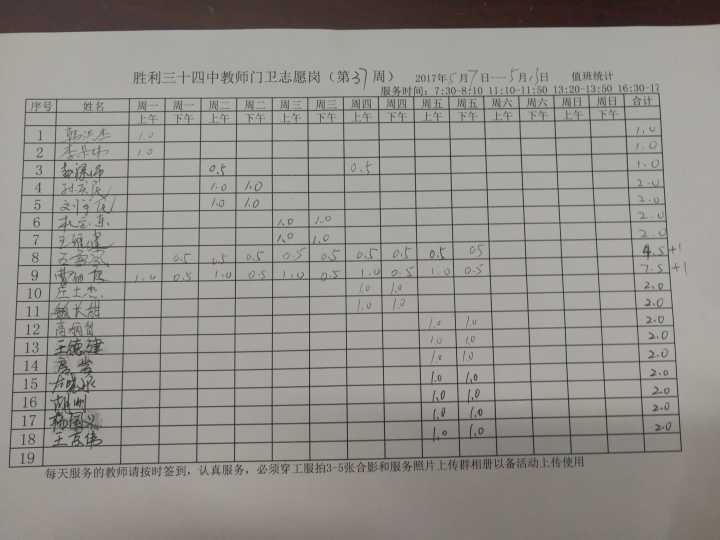 胜利三十四中教师门卫志愿岗（第37周） 2017年5月7日—5月13日 值班统计
服务时间：7:30-8:10 11:10-11:50 13:20-13:50 16:30-17
序号 姓名 周一 周一 周二 周二 周三 周三 周四 周四 周五 周五 周六 周六 周日 周日 合计
上午 下午 上午 下午 上午 下午 上午 下午 上午 下午 上午 下午 上午 下午
1 1.0 1.0
2 1.0 1.0
3 0.5 0.5 1.0
4 1.0 1.0 2.0
5 1.0 1.0 2.0
6 1.0 1.0 2.0
7 1.0 1.0 2.0
8 0.5 0.5 0.5 0.5 0.5 0.5 0.5 0.5 0.5 4.5+1
9 1.0 0.5 1.0 0.5 1.0 0.5 1.0 0.5 1.0 0.5 7.5+1
10 1.0 1.0 2.0
11 1.0 1.0 2.0
12 1.0 1.0 2.0
13 王德建 1.0 1.0 2.0
14 1.0 1.0 2.0
15 1.0 1.0 2.0
16 1.0 1.0 2.0
17 1.0 1.0 2.0
18 王京伟 1.0 1.0 2.0
19
每天服务的教师请按时签到，认真服务，必须穿工服拍3-5张合影和服务照片上传群相册以备活动上传使用